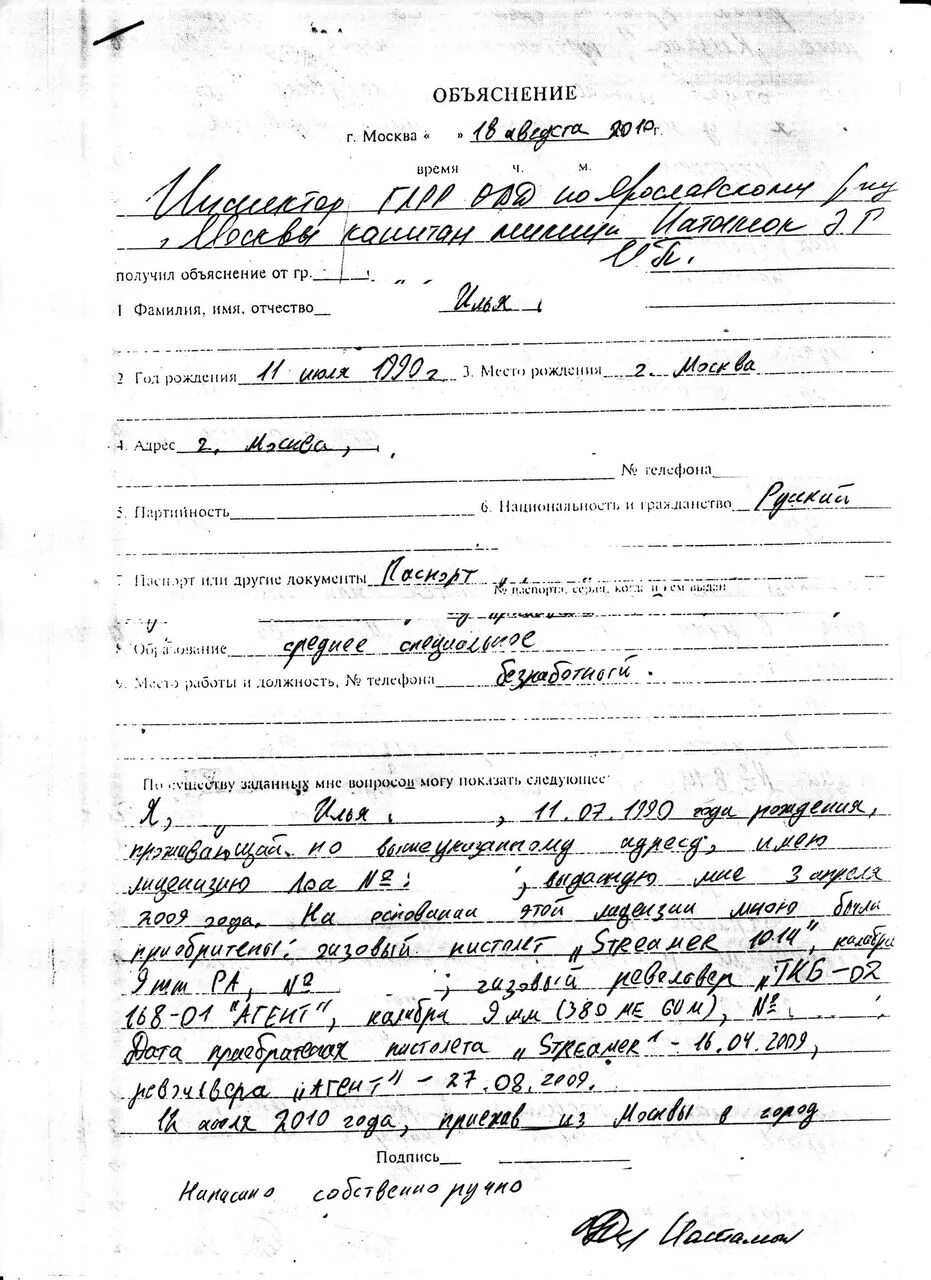 ОБЪЯСНЕНИЕ
г. Москва « » 18 августа 2010г.
время ч. м.
Инспектор ГЛРР ОВД по Ярославскому р-ну
г. Москвы капитан милиции
получил объяснение от гр.
1 Фамилия, имя, отчество Илья
2 Год рождения 11 июля 1990 г 3. Место рождения г. Москва
4. Адрес г. Москва,
№ телефона
5. Партийность 6. Национальность и гражданство Руский
7. Паспорт или другие документы Паспорт
№ паспорта, серия, когда и кем выдан
8 Образование среднее специальное
9. Место работы и должность, № телефона безработный.
По существу заданных мне вопросов могу показать следующее:
Я, Илья , 11.07.1990 года рождения,
проживающий по вышеуказанному адресу, имею
лицензию ЛОа №: , выдащую мне 3 апреля
2009 года. На основании этой лицензии мною были
приобритены: газовый пистолет „Streamer 1014", калибра
9mm PA, № ; газовый револовер „ТКБ-02
168-01 "АГЕНТ", калибра 9 мм (380 ME GUM), №
Дата приобратенах пистолета „Streamer" - 16.04.2009,
револьвера „АГЕНТ" - 27.08.2009.
12 июля 2010 года, приехав из Москвы в город
Подпись
Написано собственно ручно